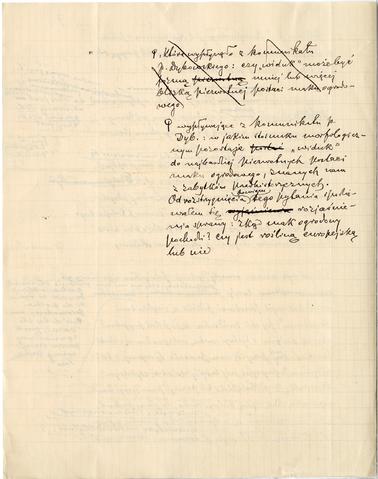 wypłynęło z komunikatu
p. Dybowskiego: czy „widuk" może być
formą pierwotną mniej lub więcej
bliską pierwotnej postaci maku ogrodo-
wego
wypływające z komunikatu p.
Dyb.: w jakim stosunku morfologicz-
nym pozostaje „widuk"
do najbardziej pierwotnych postaci
maku ogrodowego, znanych nam
z zabytków przedhistorycznych.
Od rozstrzygnięcia tego pytania spodzie-
wałem się wyjaśnienia rozjaśnie-
nia sprawy: skąd mak ogrodowy
pochodzi? czy jest rośliną europejską
lub nie